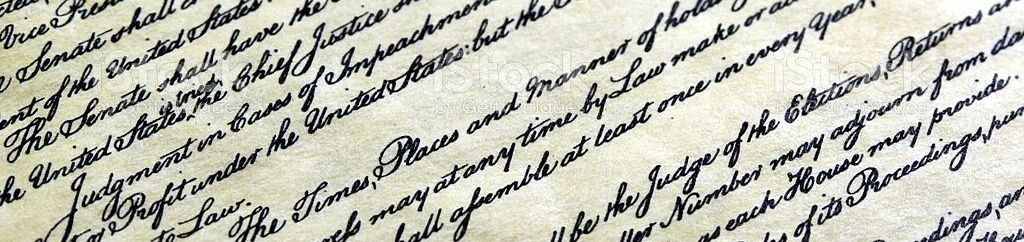 Vice Pres
Senate shall c
ent of the United States
The Senate shall have the
the United States, is tried, the Chief Justice sh
Judgment in Cases of Impeachment
or Profit under the United States: but the
Law.
The Times, Places and Manner of hold
eſs may at any time by Law make or al
all aſsemble at least once in every Year,
ll be the Judge of the Elections, Returns an
ller Number may adjourn from da
as each House may provide.
of its Proceedings, pun
dings, an
iStock
by Getty Images